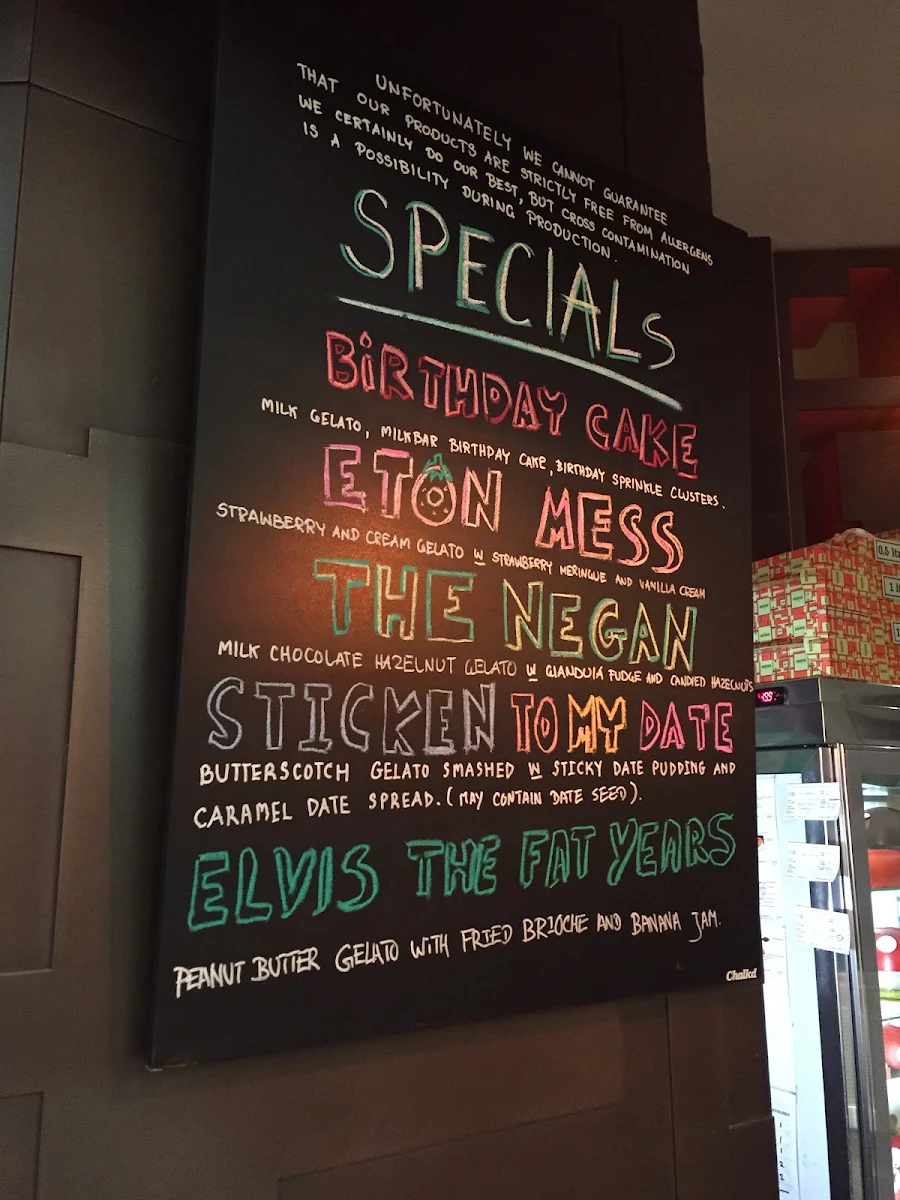 UNFORTUNATELY WE CANNOT GUARANTEE
THAT OUR PRODUCTS ARE STRICTLY FREE FROM ALLERGENS
WE CERTAINLY DO OUR BEST, BUT CROSS CONTAMINATION
IS A POSSIBILITY DURING PRODUCTION.
SPECIALS
BiRTHDAY CAKE
MILK GELATO, MILKBAR BIRTHDAY CAKE, BIRTHDAY SPRINKLE CLUSTERS.
ETON MESS
STRAWBERRY AND CREAM GELATO W STRAWBERRY MERINGUE AND VANILLA CREAM
THE NEGAN
MILK CHOCOLATE HAZELNUT GELATO W GIANDUIA FUDGE AND CANDIED HAZELNUTS
STICKEN TO MY DATE
BUTTERSCOTCH GELATO SMASHED W STICKY DATE PUDDING AND
CARAMEL DATE SPREAD. (MAY CONTAIN DATE SEED).
ELVIS THE FAT YEARS
PEANUT BUTTER GELATO WITH FRIED BRIOCHE AND BANANA JAM.
Chalkd